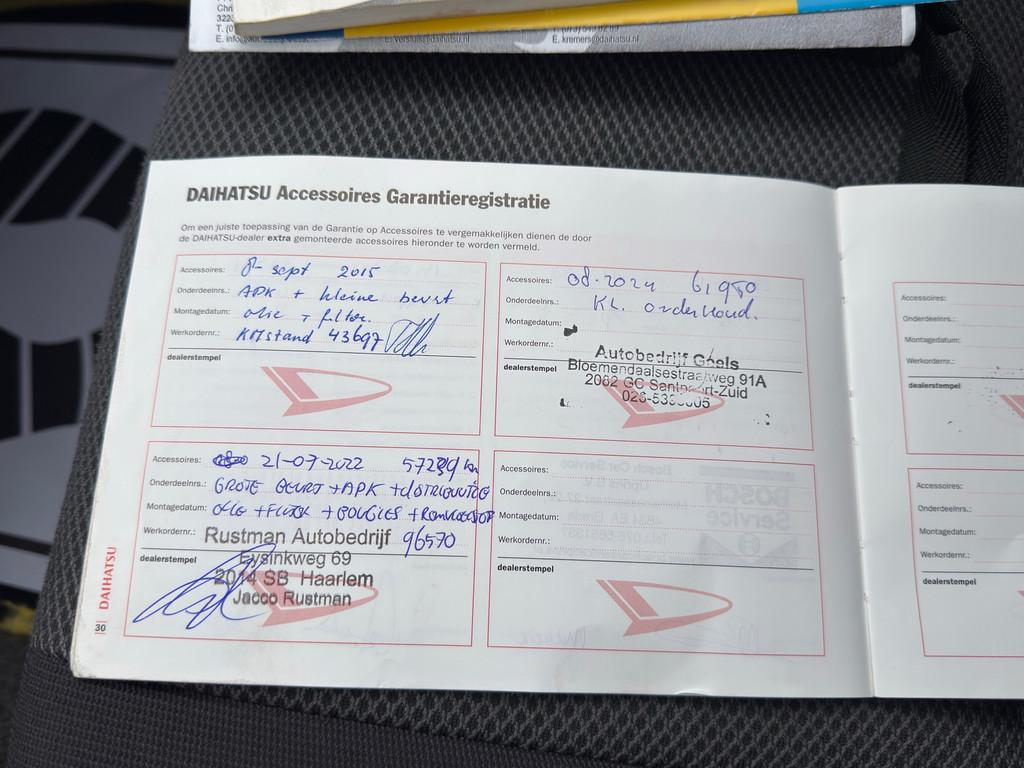 Chri
322
T. (0)
E. info
E. versluis@daihatsu.nl
E. kremers@daihatsu.nl
DAIHATSU Accessoires Garantieregistratie
Om een juiste toepassing van de Garantie op Accessoires te vergemakkelijken dienen de door
de DAIHATSU-dealer extra gemonteerde accessoires hieronder te worden vermeld.
Accessoires: 8- sept 2015
Onderdeelnrs.: APK + kleine beurt
Montagedatum: olie + filter.
Werkordernr.: KMstand 43697
dealerstempel
Accessoires: 08-2024 61950
Onderdeelnrs.: KL. onderhoud.
Montagedatum:
Werkordernr.:
Autobedrijf Geels
dealerstempel
Bloemendaalsestraatweg 91A
2082 GC Santpoort-Zuid
Accessoires: 21-07-2022 57239 km
Onderdeelnrs.: GROTE BEURT + APK + DISTRIBUTIE
Montagedatum: OLIE + FILTER + BOUGIES + REMVLOEISTOF
Werkordernr.: 96570
Rustman Autobedrijf
Eysinkweg 69
dealerstempel
2014 SB Haarlem
Jacco Rustman
Accessoires:
Onderdeelnrs.:
Montagedatum:
Werkordernr.:
dealerstempel
30 DAIHATSU
Accessoires:
Onderdeelnrs.:
Montagedatum:
Werkordernr.:
dealerstempel
Accessoires:
Onderdeelnrs.:
Montagedatum:
Werkordernr.:
dealerstempel